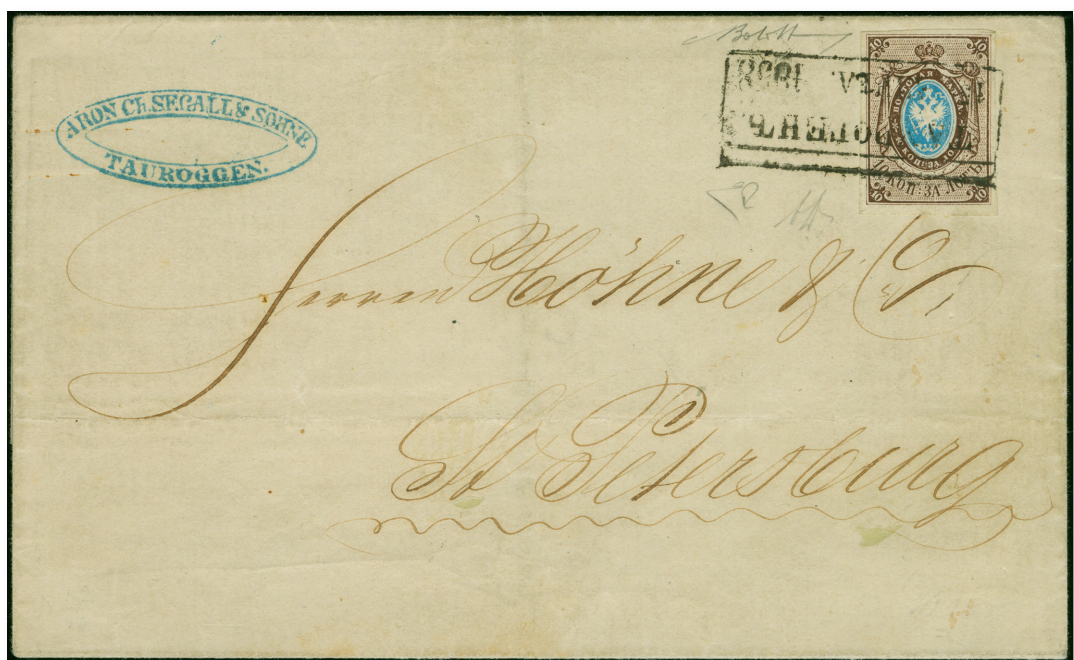 ARON Ch. SEGALL & SÖHNE
TAUROGGEN.
10 10
ПОЧТОВАЯ МАРКА
10 КОП. ЗА ЛОТЪ
10 10
1858
Herren Höhne & Co,
St Petersburg